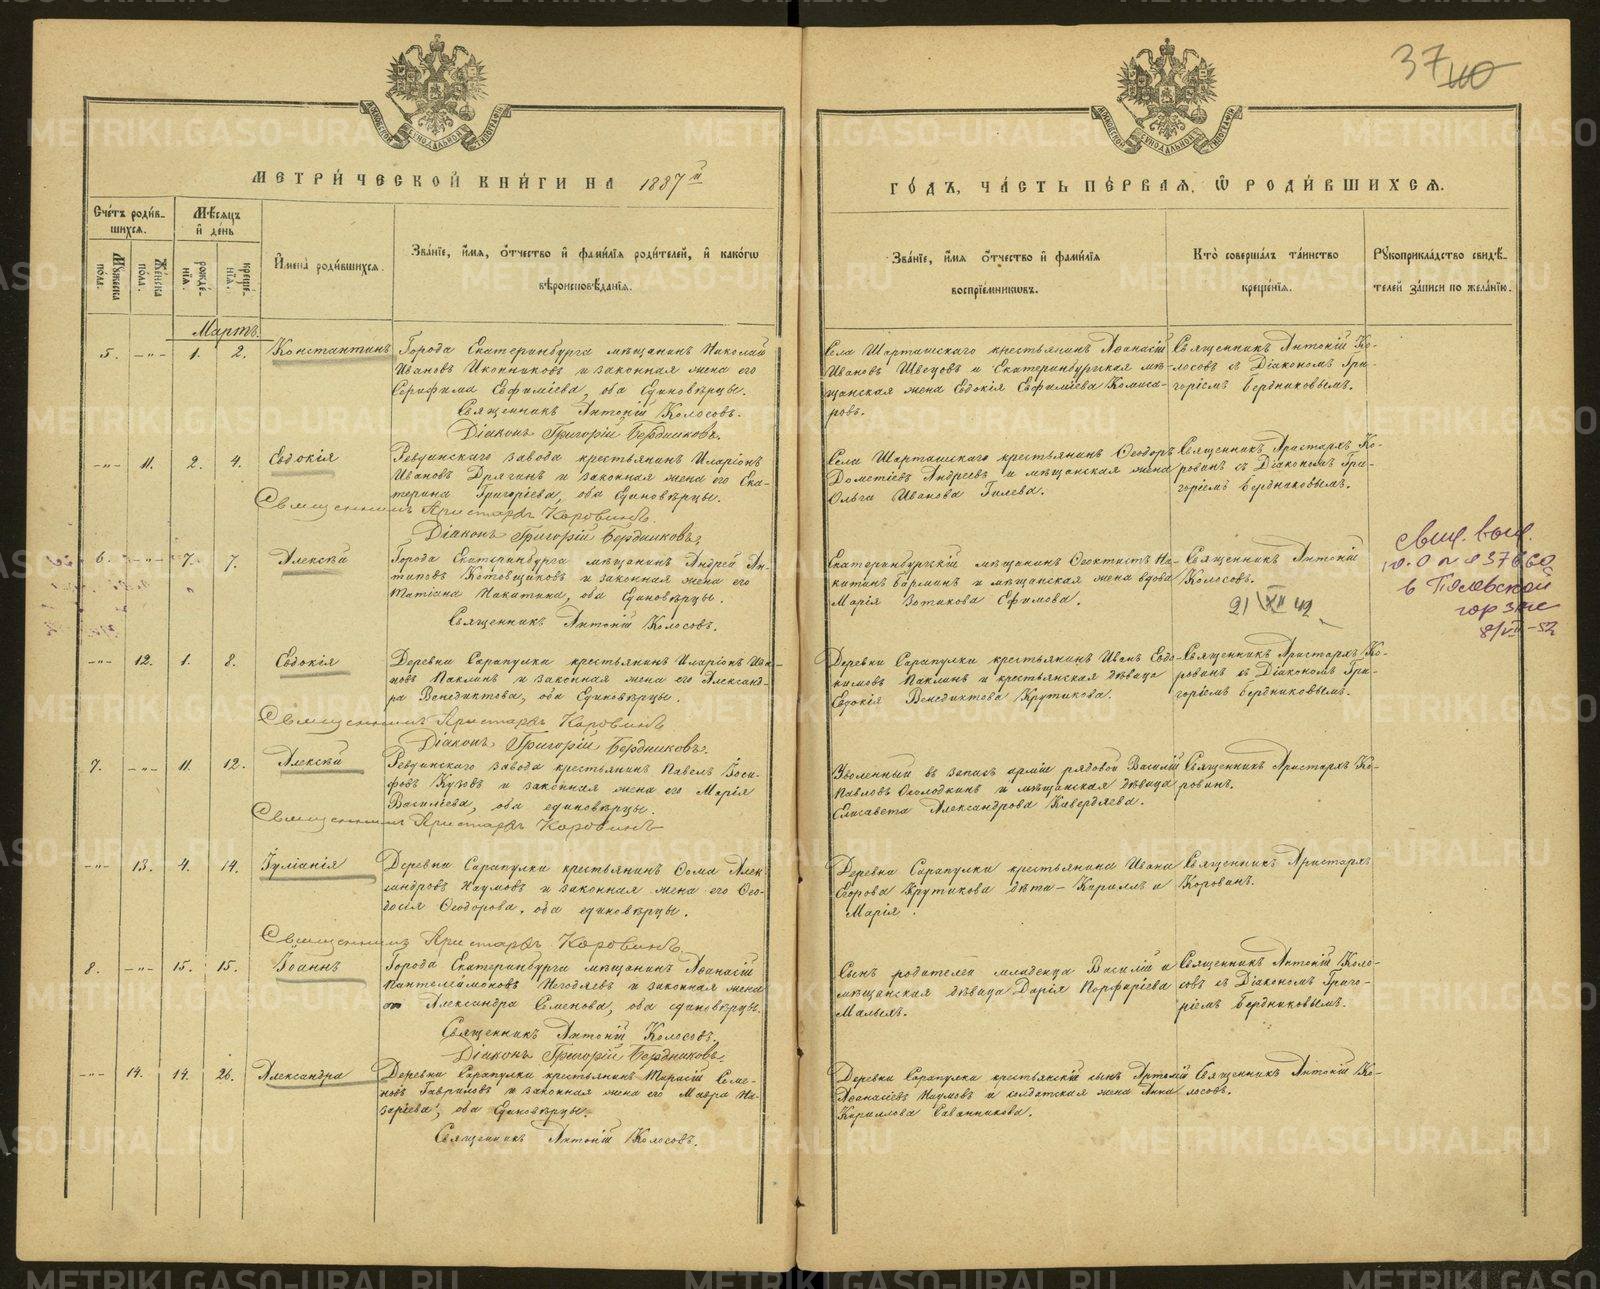 37 110
МОСКОВСКОЙ СѴНОДАЛЬНОЙ ТИПОГРАФІИ
МОСКОВСКОЙ СѴНОДАЛЬНОЙ ТИПОГРАФІИ
МЕТРИ́ЧЕСКОЙ КНИ́ГИ НА 1887й
ГО́ДЪ, ЧА́СТЬ ПЕ́РВАЯ, Ѡ РОДИ́ВШИХСѦ.
Сче́тъ роди́в-
шихсѧ.
Му́жеска по́ла.
Же́нска по́ла.
Мѣ́сѧцъ и́ де́нь
рожде́-нїѧ.
креще́-нїѧ.
И́мена̀ роди́вшихсѧ.
Зва́нїе, и́мѧ, о́тчество и́ фами́лїѧ роди́телей, и́ како́гѡ
вѣроисповѣ́данїѧ.
Зва́нїе, и́мѧ о́тчество и́ фами́лїѧ
воспрїе́мникѡвъ.
Кто̀ соверша́лъ та́инство
креще́нїѧ.
Рꙋкоприкла́дство свидѣ́-
телей за́писи по жела́нїю.
Мартъ.
5. -"- 1. 2. Константинъ
Города Екатеринбурга мѣщанинъ Николай
Ивановъ Иконниковъ и законная жена его
Серафима Евфиміева, оба Единовѣрцы.
Священникъ Антоній Колосовъ.
Діаконъ Григорій Бердниковъ.
Села Шарташскаго крестьянинъ Аѳанасій
Ивановъ Швецовъ и Екатеринбургская мѣ-
щанская жена Евдокія Евфиміева Комиса-
ровъ.
Священникъ Антоній Ко-
лосовъ съ Діакономъ Гри-
горіемъ Бердниковымъ.
-"- 11. 2. 4. Евдокія
Ревдинскаго завода крестьянинъ Иларіонъ
Ивановъ Дрягинъ и законная жена его Ека-
терина Григоріева, оба Единовѣрцы.
Священникъ Аристархъ Коровинъ.
Діаконъ Григорій Бердниковъ.
Села Шарташскаго крестьянинъ Ѳеодоръ
Дометіевъ Андреевъ и мѣщанская жена
Ольга Иванова Гилева.
Священникъ Аристархъ Ко-
ровинъ съ Діакономъ Гри-
горіемъ Бердниковымъ.
6. -"- 7. 7. Алексѣй
Города Екатеринбурга мѣщанинъ Андрей Ан-
типовъ Котовщиковъ и законная жена его
Татіана Никитина, оба Единовѣрцы.
Священникъ Антоній Колосовъ.
Екатеринбургскій мѣщанинъ Ѳеоктистъ Ни-
китинъ Барминъ и мѣщанская жена вдова
Марія Зотикова Ефимова.
Священникъ Антоній
Колосовъ.
21 XII 42
свид. выд.
ю.О № 837660
в Полевской
гор загс
8/VII-52
-"- 12. 1. 8. Евдокія
Деревни Сарапулки крестьянинъ Иларіонъ Ива-
новъ Паклинъ и законная жена его Александ-
ра Венедиктова, оба Единовѣрцы.
Священникъ Аристархъ Коровинъ
Діаконъ Григорій Бердниковъ.
Деревни Сарапулки крестьянинъ Иванъ Евдо-
кимовъ Паклинъ и крестьянская дѣвица
Евдокія Венедиктова Крутикова.
Священникъ Аристархъ Ко-
ровинъ съ Діакономъ Гри-
горіемъ Бердниковымъ.
7. -"- 11. 12. Алексѣй
Ревдинскаго завода крестьянинъ Павелъ Іоси-
фовъ Кузовъ и законная жена его Марія
Василіева, оба единовѣрцы.
Священникъ Аристархъ Коровинъ
Уволенный въ запасъ арміи рядовой Василій
Павловъ Осолодкинъ и мѣщанская дѣвица
Елисавета Александрова Кавердяева.
Священникъ Аристархъ Ко-
ровинъ.
-"- 13. 4. 14. Іуліанія
Деревни Сарапулки крестьянинъ Ѳома Алек-
сандровъ Наумовъ и законная жена его Ѳео-
досія Ѳеодорова, оба единовѣрцы.
Священникъ Аристархъ Коровинъ.
Деревни Сарапулки крестьянина Ивана
Егорова Крутикова дѣти - Кириллъ и
Марія.
Священникъ Аристархъ
Коровинъ.
8. -"- 15. 15. Іоаннъ
Города Екатеринбурга мѣщанинъ Аѳанасій
Пантелеимоновъ Негодяевъ и законная жена
Александра Семенова, оба единовѣрцы.
Священникъ Антоній Колосовъ.
Діаконъ Григорій Бердниковъ.
Сынъ родителей младенца Василій и
мѣщанская дѣвица Дарія Порфиріева
Малыхъ.
Священникъ Антоній Коло-
совъ съ Діакономъ Григо-
ріемъ Бердниковымъ.
-"- 14. 14. 26. Александра
Деревни Сарапулки крестьянинъ Тарасій Семе-
новъ Гавриловъ и законная жена его Мавра На-
заріева, оба Единовѣрцы.
Священникъ Антоній Колосовъ.
Деревни Сарапулки крестьянскій сынъ Артемій
Аѳанасіевъ Наумовъ и солдатская жена Анна
Кириллова Саванникова.
Священникъ Антоній Ко-
лосовъ.
METRIKI.GASO-URAL.RU